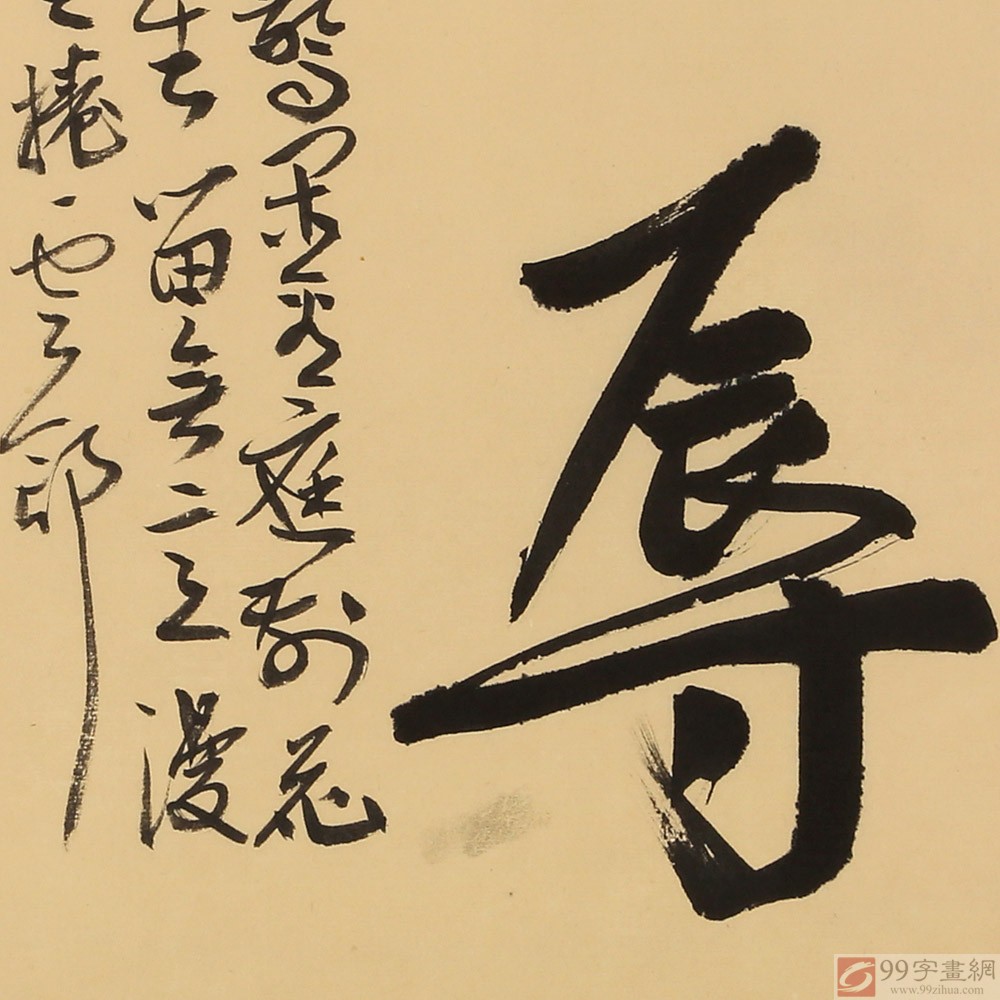 辱
驚閑看庭前花
去留無意漫
捲雲舒
99字畫網
www.99zihua.com